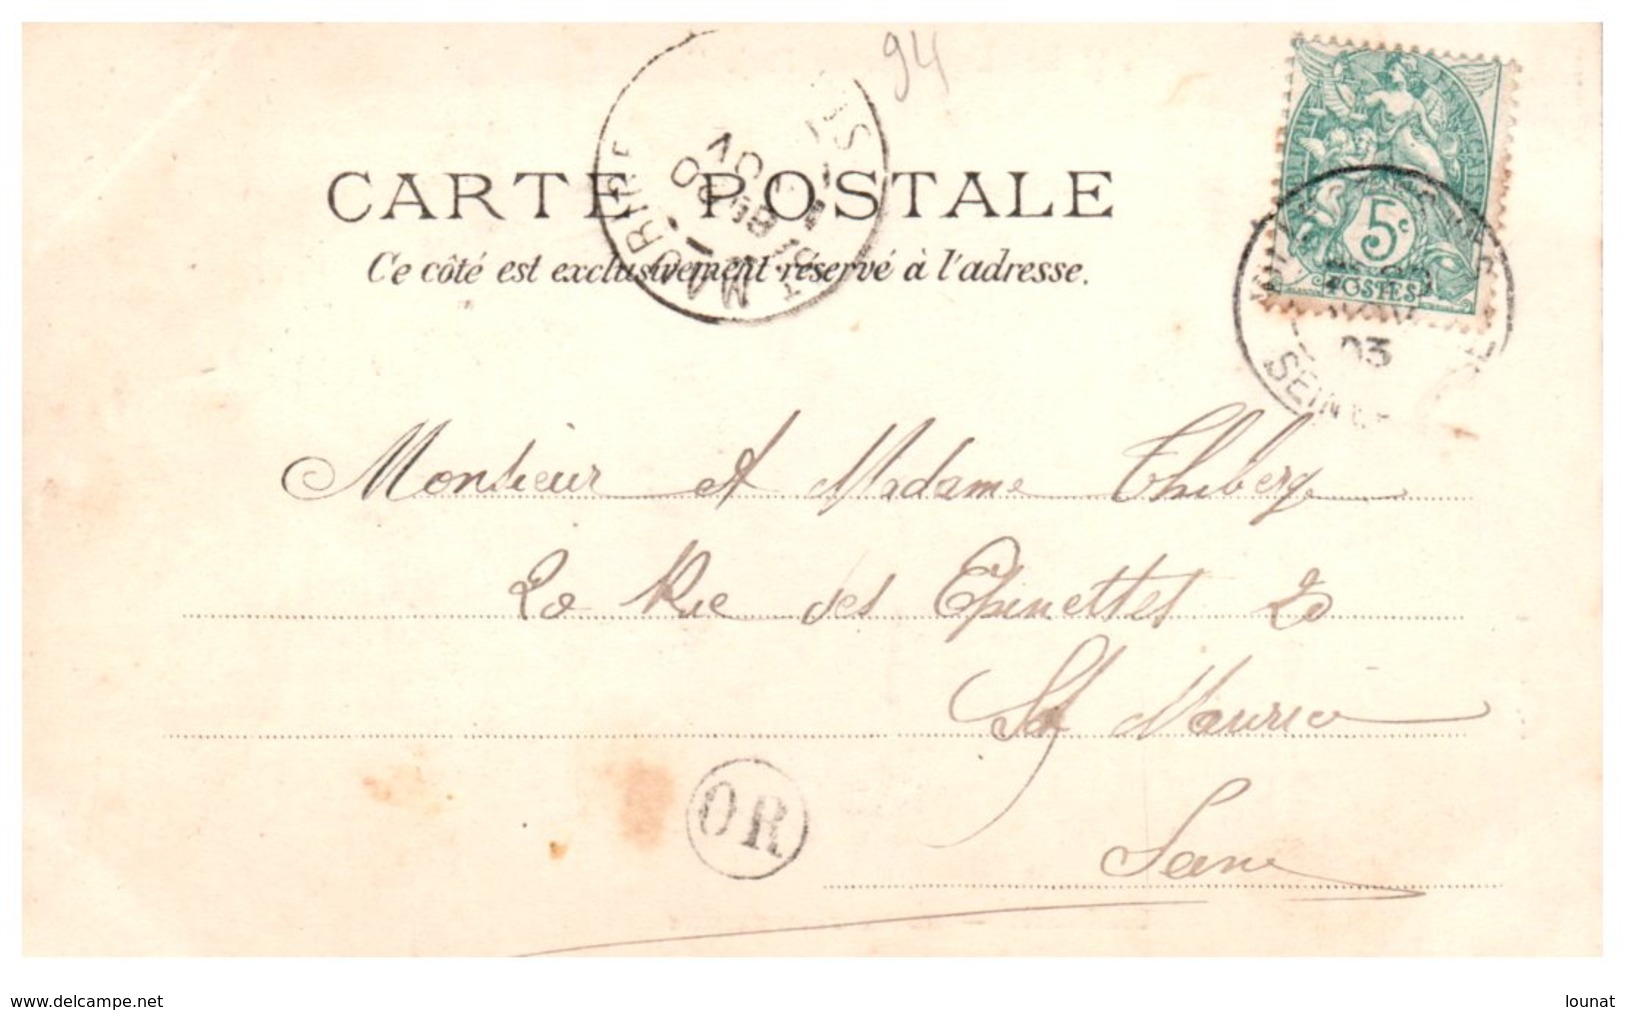 94
CARTE POSTALE
Ce côté est exclusivement réservé à l'adresse.
RÉPUBLIQUE FRANÇAISE
5c
POSTES
03
SEINE
ST MAURICE
Monsieur et Madame Thiberge
20 Rue des Epinettes 20
St Maurice
Seine
OR
www.delcampe.net
lounat